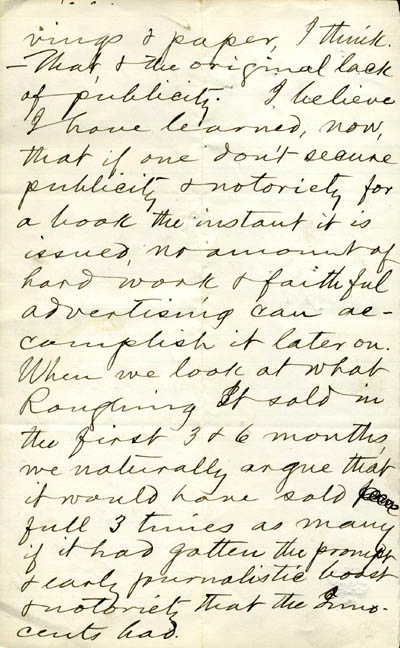 vings & paper, I think.
—That, & the original lack
of publicity. I believe
I have learned, now,
that if one don't secure
publicity & notoriety for
a book the instant it is
issued, no amount of
hard work & faithful
advertising can ac-
complish it later on.
When we look at what
Roughing It sold in
the first 3 & 6 months,
we naturally argue that
it would have sold
full 3 times as many
if it had gotten the prompt
& early journalistic boost
& notoriety that the Inno-
cents had.